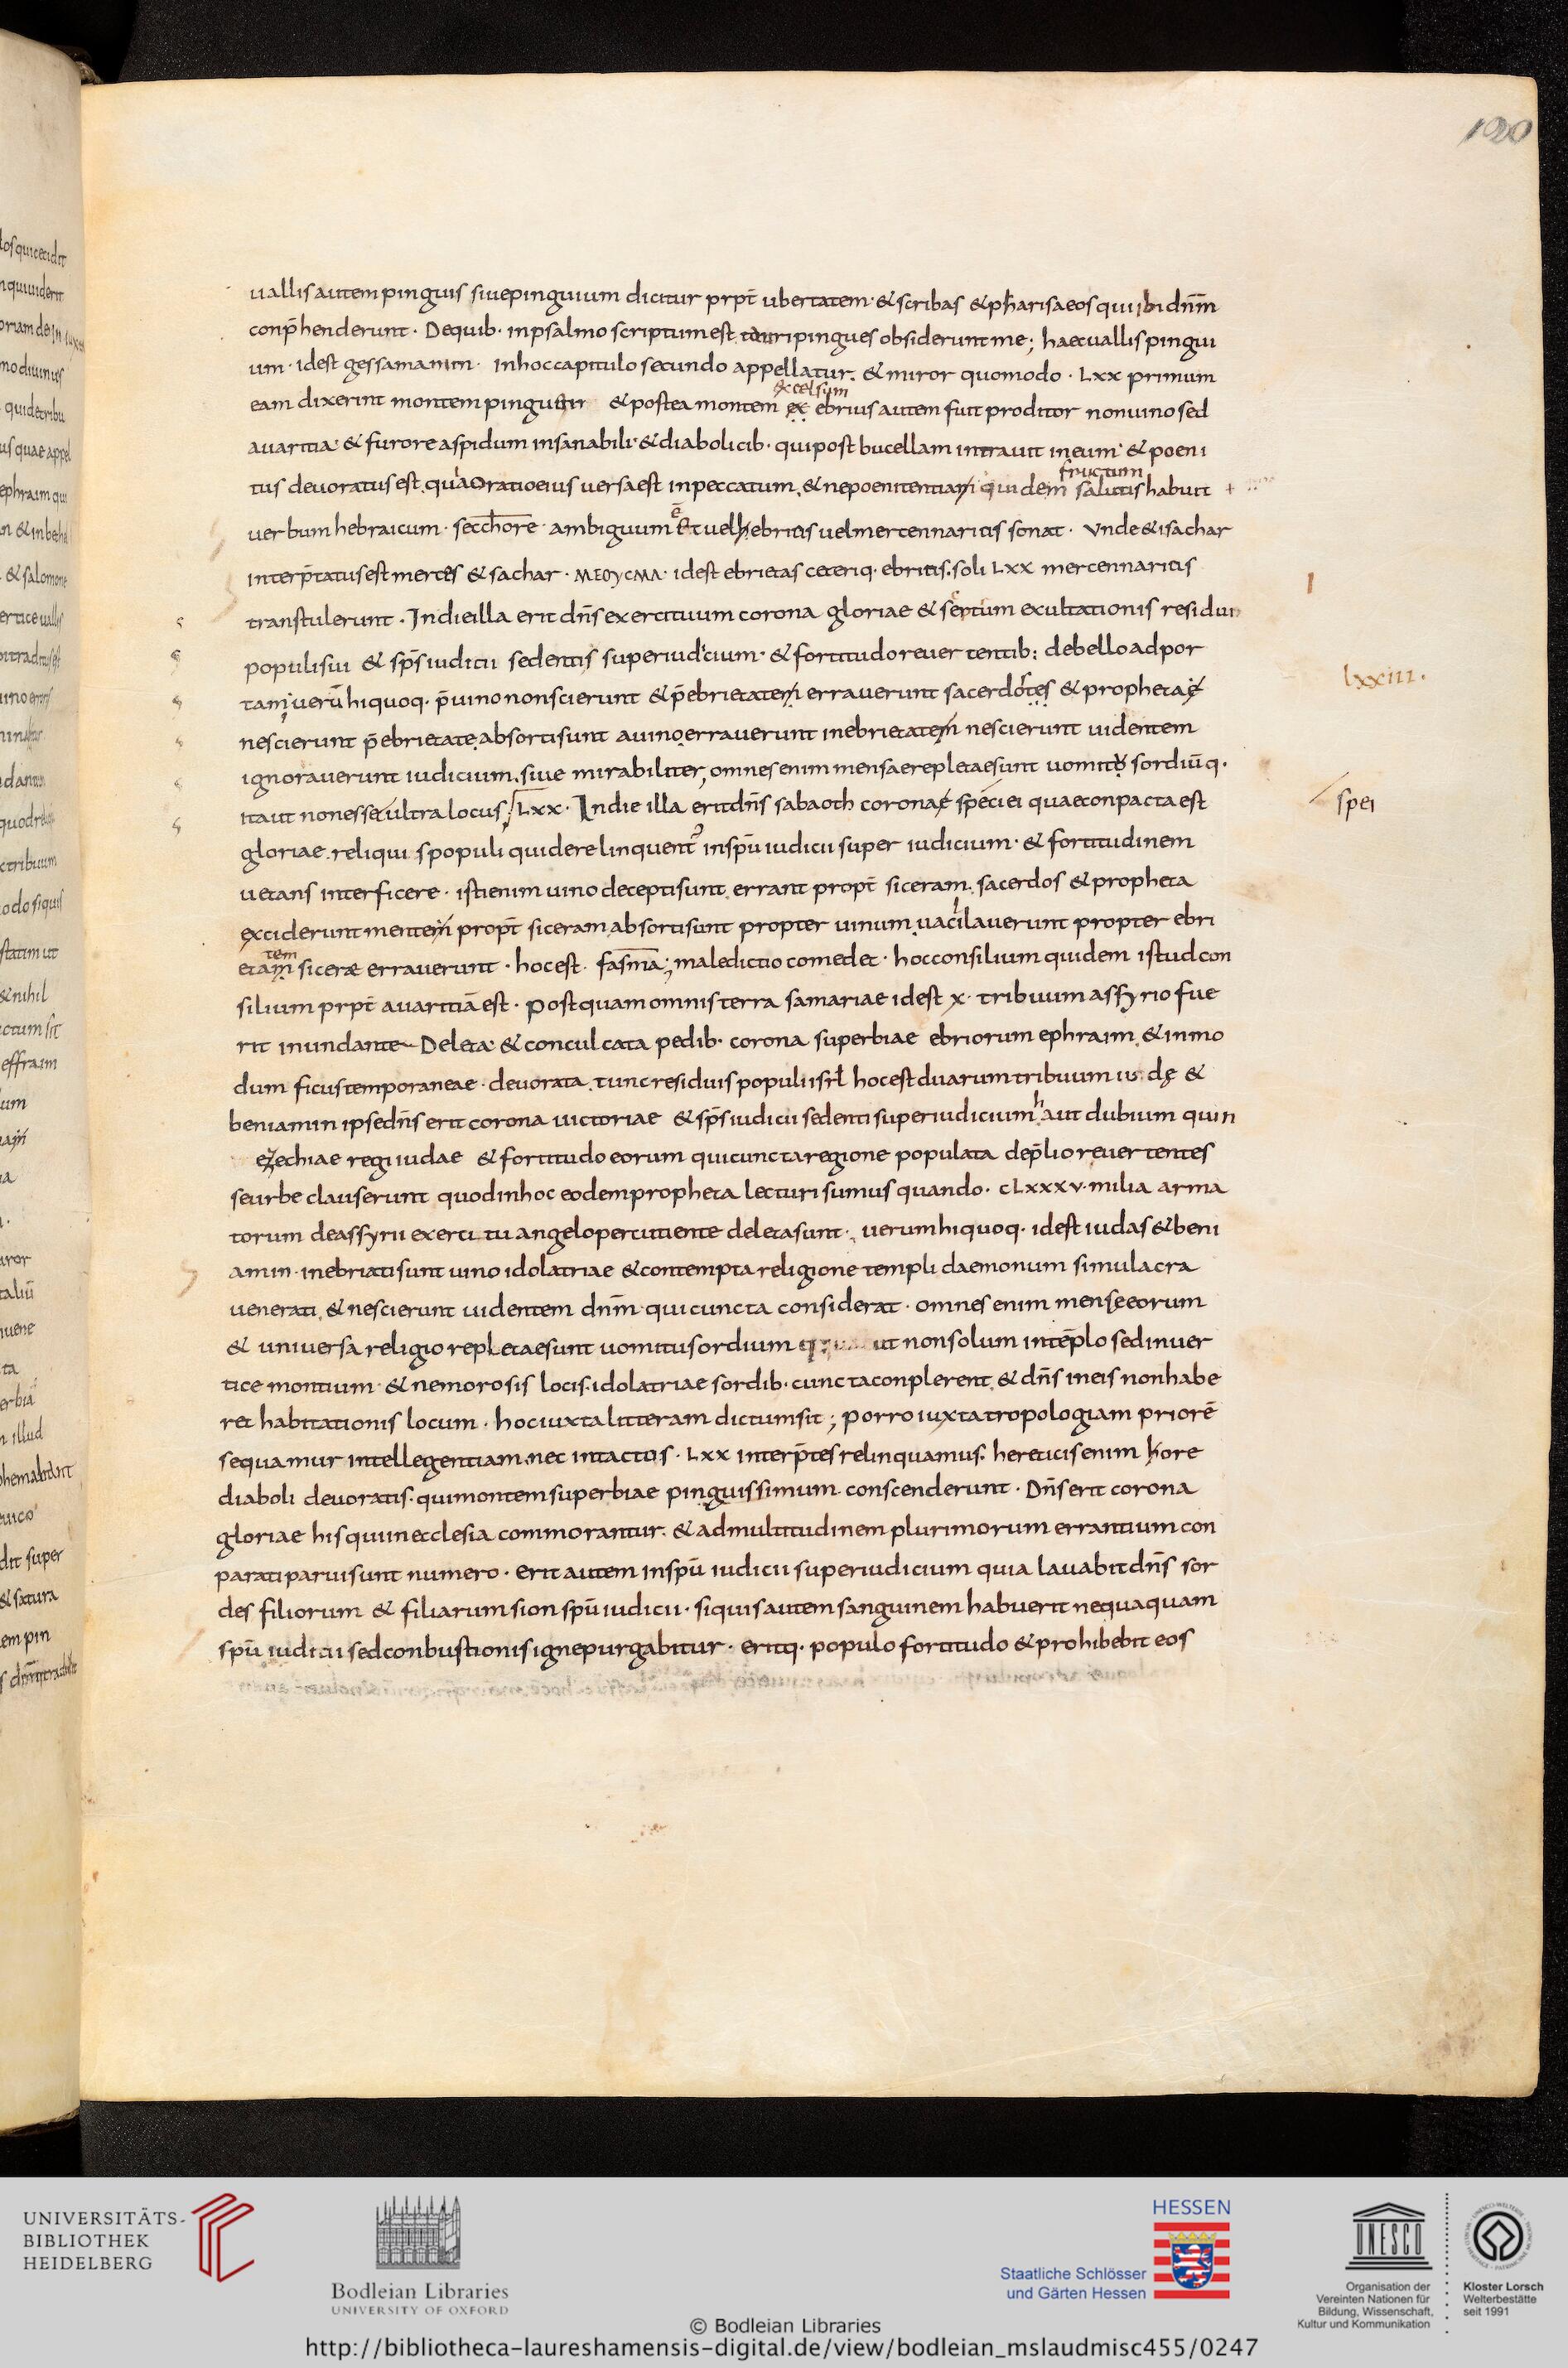 120
uallis autem pinguis siue pinguium dicitur prpt̄ ubertatem· & scribas & pharisaeos qui ibi dn̄m
conp̄henderunt· De quib· in psalmo scriptum est tauri pingues obsiderunt me; haec uallis pingui
um· id est gessamanim· in hoc capitulo secundo appellatur. & miror quomodo· Lxx primum
excelsum
eam dixerint montem pinguem & postea montem ex ebrius autem fuit proditor non uino sed
auaritia· & furore aspidum insanabili· & diabolicib· qui post bucellam intrauit in eum· & poeni
fructum
tus deuoratus est quia Oratio eius uersa est in peccatum, & ne poenitentiam quidem salutis habuit
uerbum hebraicum· secchore· ambiguum ē & uel ebriis uel mercennariis sonat· Vnde & isachar
interp̄tatus est merces & sachar· ΜΕΘΥCΜΑ· id est ebrietas ceteriq· ebriis. soli Lxx mercennariis
transtulerunt· In die illa erit dn̄s exercituum corona gloriae & sertum exultationis residui
populi sui & sp̄s iudicii sedentis super iudicium· & fortitudo reuertentib: de bello ad por
tam; uerū hi quoq· p̄ uino non scierunt & p̄ ebrietatem errauerunt sacerdotes & prophetae
lxxiii.
nescierunt p̄ ebrietate, absorti sunt a uino, errauerunt in ebrietatem nescierunt uidentem
ignorauerunt iudicium. siue mirabiliter, omnes enim mensae repletae sunt uomitu sordiūq·
ita ut non esset ultra locus; Lxx· In die illa erit dn̄s sabaoth corona speciei quae conpacta est
spei
gloriae reliquis populi qui derelinquent in spū iudicii super iudicium· & fortitudinem
uetans interficere· isti enim uino decepti sunt errant propt̄ siceram. sacerdos & propheta
exciderunt mentem propt̄ siceram absorti sunt propter uinum uacilauerunt propter ebri
tem
etam sicerae errauerunt· hoc est· fasma; maledictio comedet· hoc consilium quidem istud con
silium prpt̄ auaritiā est· Postquam omnis terra samariae id est x· tribuum assyrio fue
rit inundante Deleta· & conculcata pedib· corona superbiae ebriorum ephraim, & in mo
dum ficus temporaneae· deuorata. tunc residuis populi isrl̄ hoc est duarum tribuum iudę &
beniamin ipse dn̄s erit corona uictoriae & sp̄s iudicii sedenti super iudicium haut dubium quin
ezechiae regi iudae & fortitudo eorum qui cuncta regione populata de p̄lio reuertentes
se urbe clauserunt quod in hoc eodem propheta lecturi sumus quando· cLxxxv· milia arma
torum de assyrii exercitu angelo percutiente deleta sunt·, uerum hi quoq· id est iudas & beni
amin· inebriati sunt uino idolatriae & contempta religione templi daemonum simulacra
uenerati, & nescierunt uidentem dn̄m· qui cuncta considerat· omnes enim mense eorum
& uniuersa religio repletae sunt uomitu sordium ut non solum in tēplo sed in uer
tice montium· & nemorosis locis. idolatriae sordib· cuncta conplerent, & dn̄s in eis non habe
ret habitationis locum· hoc iuxta litteram dictum sit; porro iuxta tropologiam priorē
sequamur intellegentiam. nec intactos· Lxx interp̄tes relinquamus. hereticis enim hore
diaboli deuoratis· qui montem superbiae pinguissimum conscenderunt· Dn̄s erit corona
gloriae his qui in ecclesia commorantur. & ad multitudinem plurimorum errantium con
parati parui sunt numero· erit autem in spū iudicii super iudicium quia lauabit dn̄s sor
des filiorum & filiarum sion spū iudicii· si quis autem sanguinem habuerit nequaquam
spū iudicii sed conbustionis igne purgabitur· eritq· populo fortitudo & prohibebit eos
UNIVERSITÄTS-
BIBLIOTHEK
HEIDELBERG
Bodleian Libraries
UNIVERSITY OF OXFORD
© Bodleian Libraries
http://bibliotheca-laureshamensis-digital.de/view/bodleian_mslaudmisc455/0247
HESSEN
Staatliche Schlösser
und Gärten Hessen
UNESCO
Organisation der
Vereinten Nationen für
Bildung, Wissenschaft,
Kultur und Kommunikation
Kloster Lorsch
Welterbestätte
seit 1991